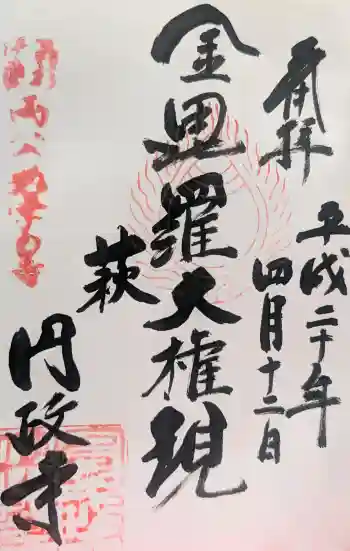 奉拝
平成二十年
四月十二日
金毘羅大権現
萩
円政寺